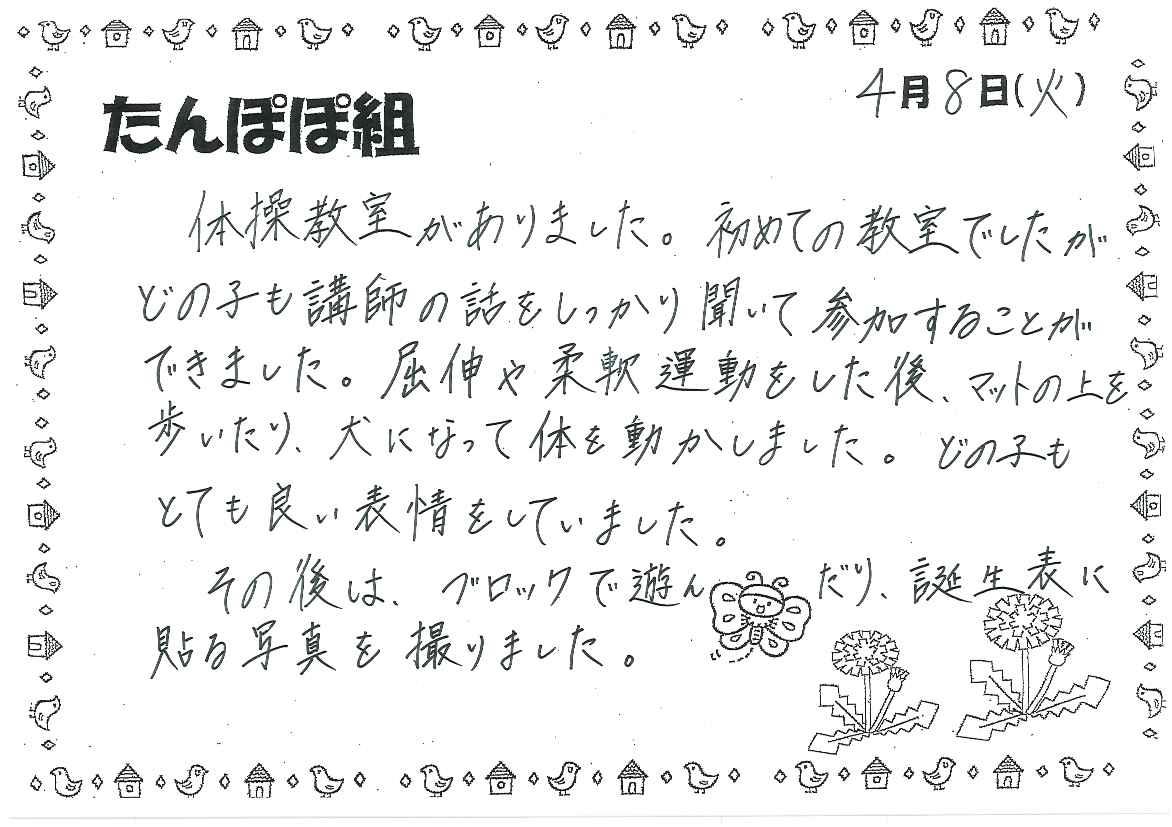 4月8日(火)
たんぽぽ組
体操教室がありました。初めての教室でしたが
どの子も講師の話をしっかり聞いて参加することが
できました。屈伸や柔軟運動をした後、マットの上を
歩いたり、犬になって体を動かしました。どの子も
とても良い表情をしていました。
その後は、ブロックで遊んだり、誕生表に
貼る写真を撮りました。